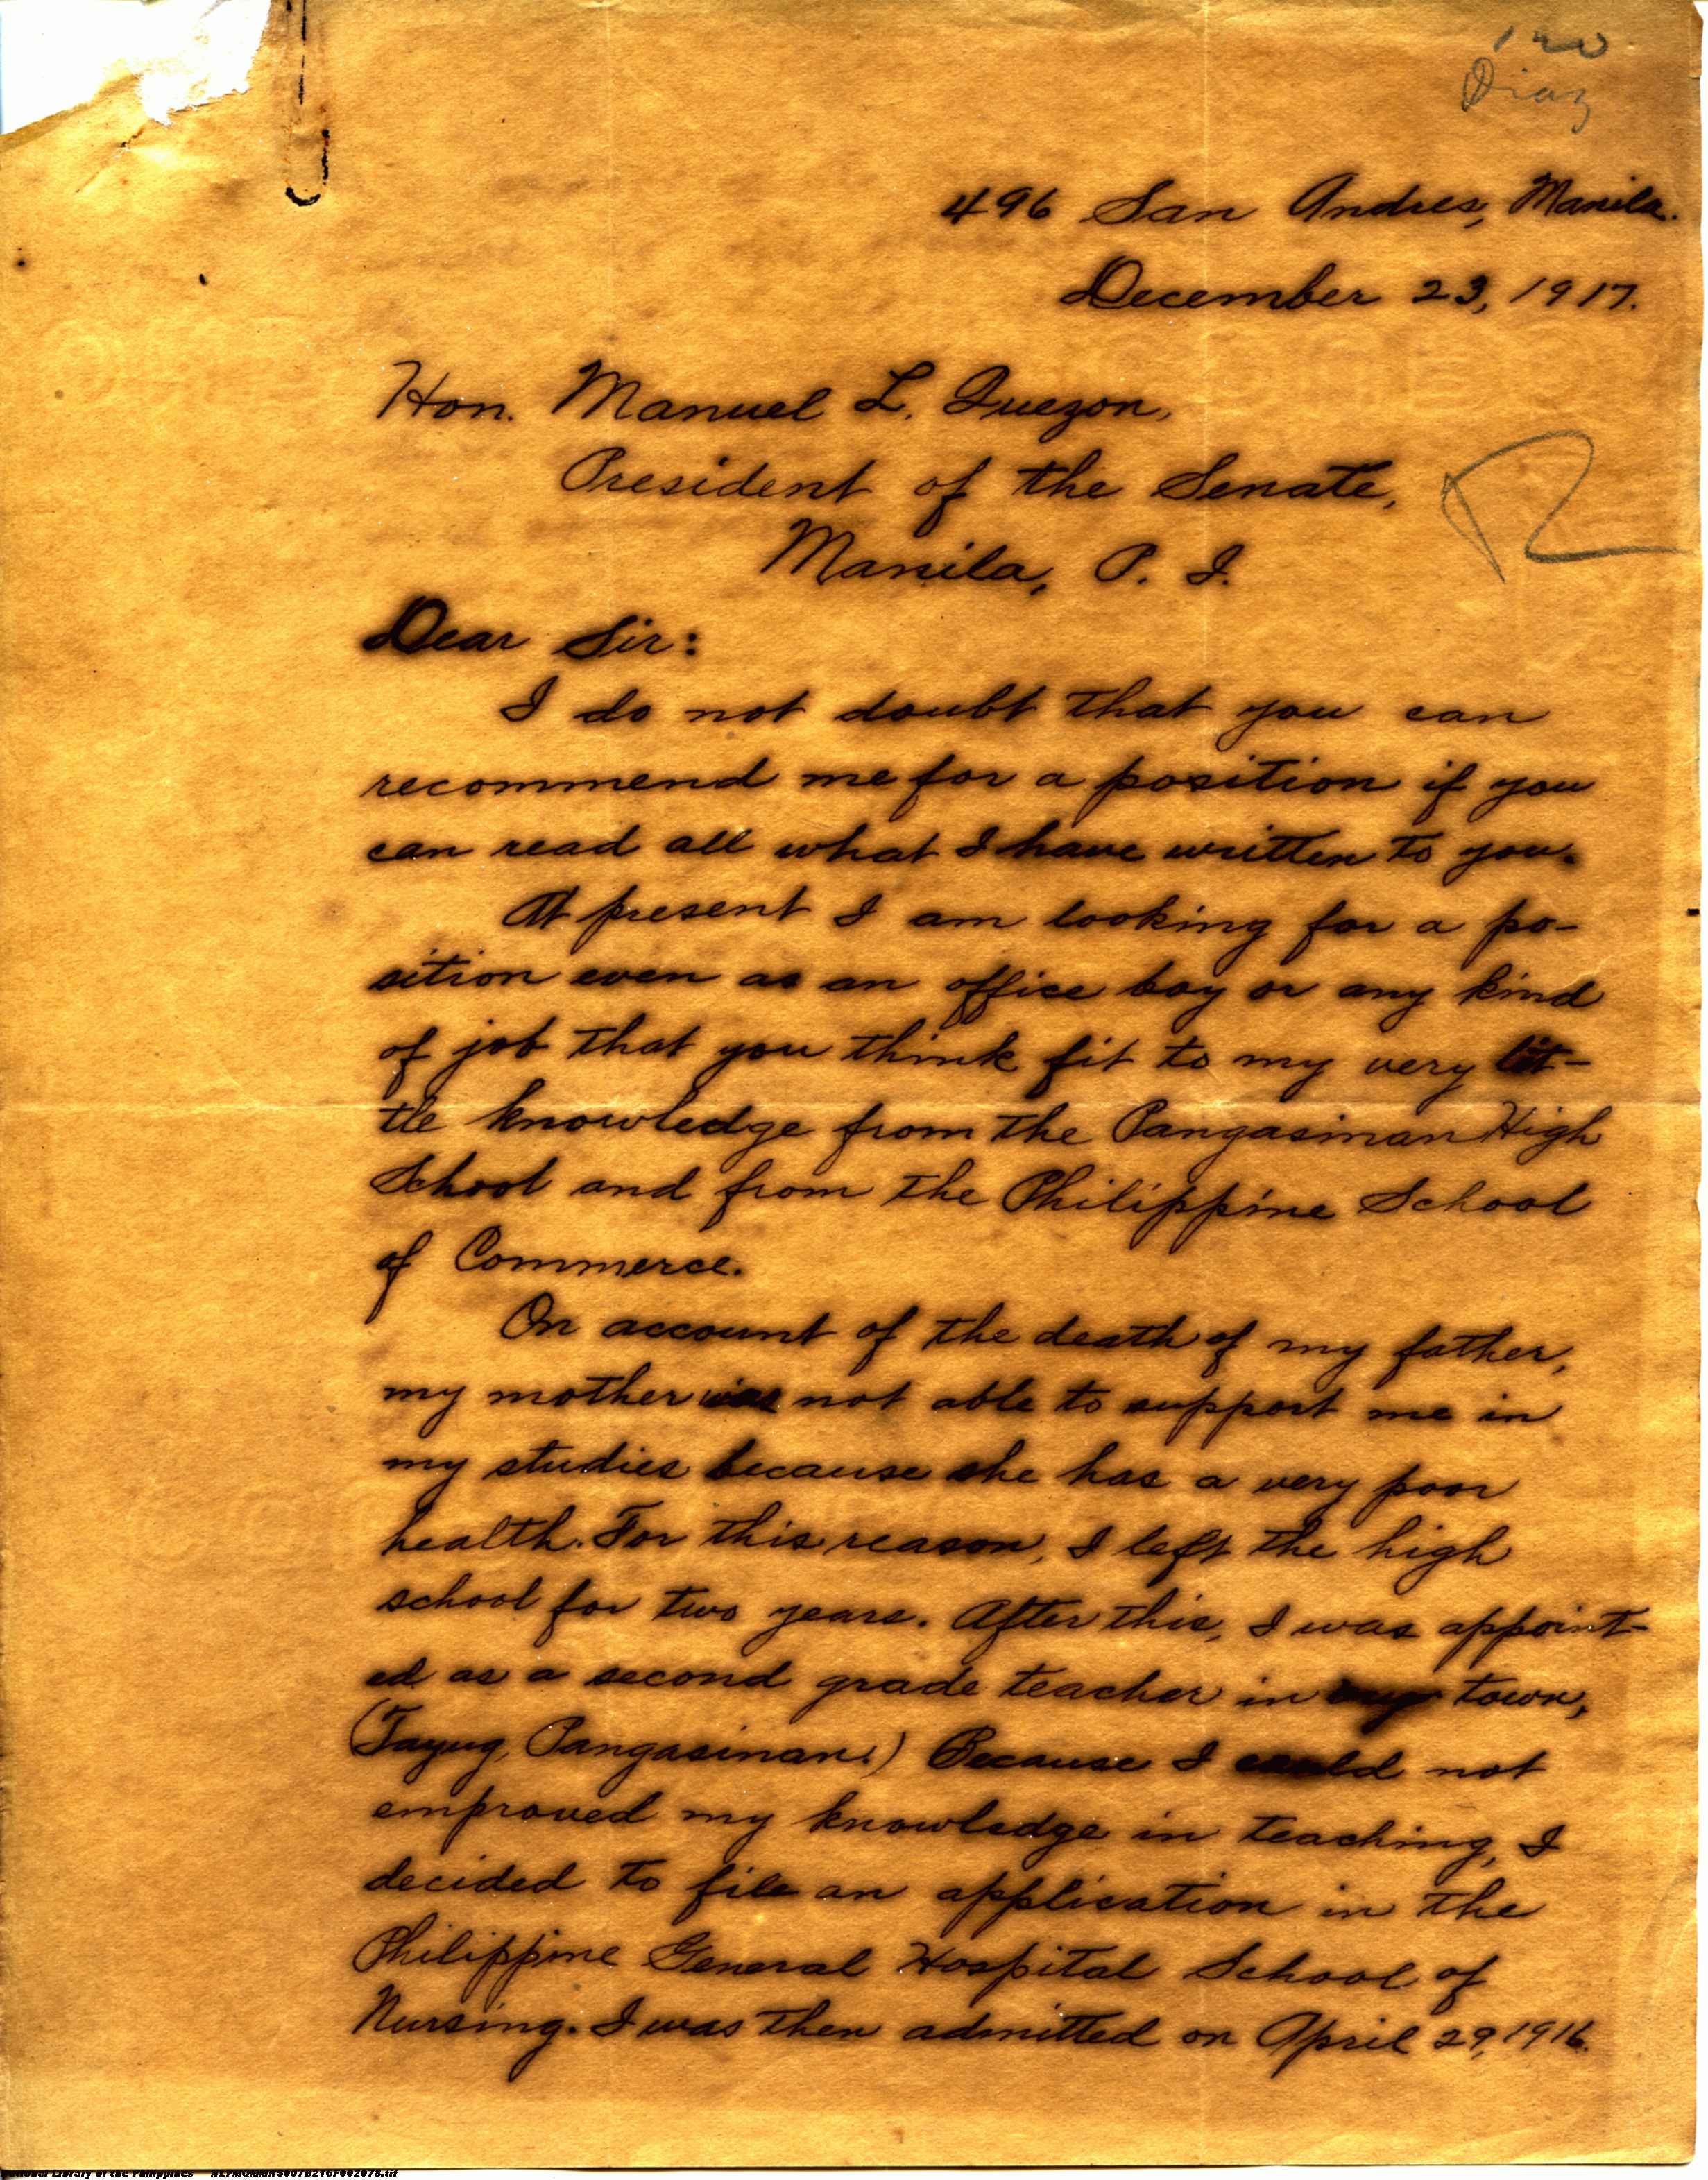 Diaz
496 San Andres, Manila.
December 23, 1917.
Hon. Manuel L. Quezon,
President of the Senate,
Manila, P. I.
R
Dear Sir:
I do not doubt that you can
recommend me for a position if you
can read all what I have written to you.
At present I am looking for a po-
sition even as an office boy or any kind
of job that you think fit to my very lit-
tle knowledge from the Pangasinan High
School and from the Philippine School
of Commerce.
On account of the death of my father,
my mother was not able to support me in
my studies because she has a very poor
health. For this reason, I left the high
school for two years. After this, I was appoint-
ed as a second grade teacher in my town,
(Tayug, Pangasinan.) Because I could not
emproved my knowledge in teaching, I
decided to file an application in the
Philippine General Hospital School of
Nursing. I was then admitted on April 29, 1916.
National Library of the Philippines NLPMQMMNS007B216F002078.tif